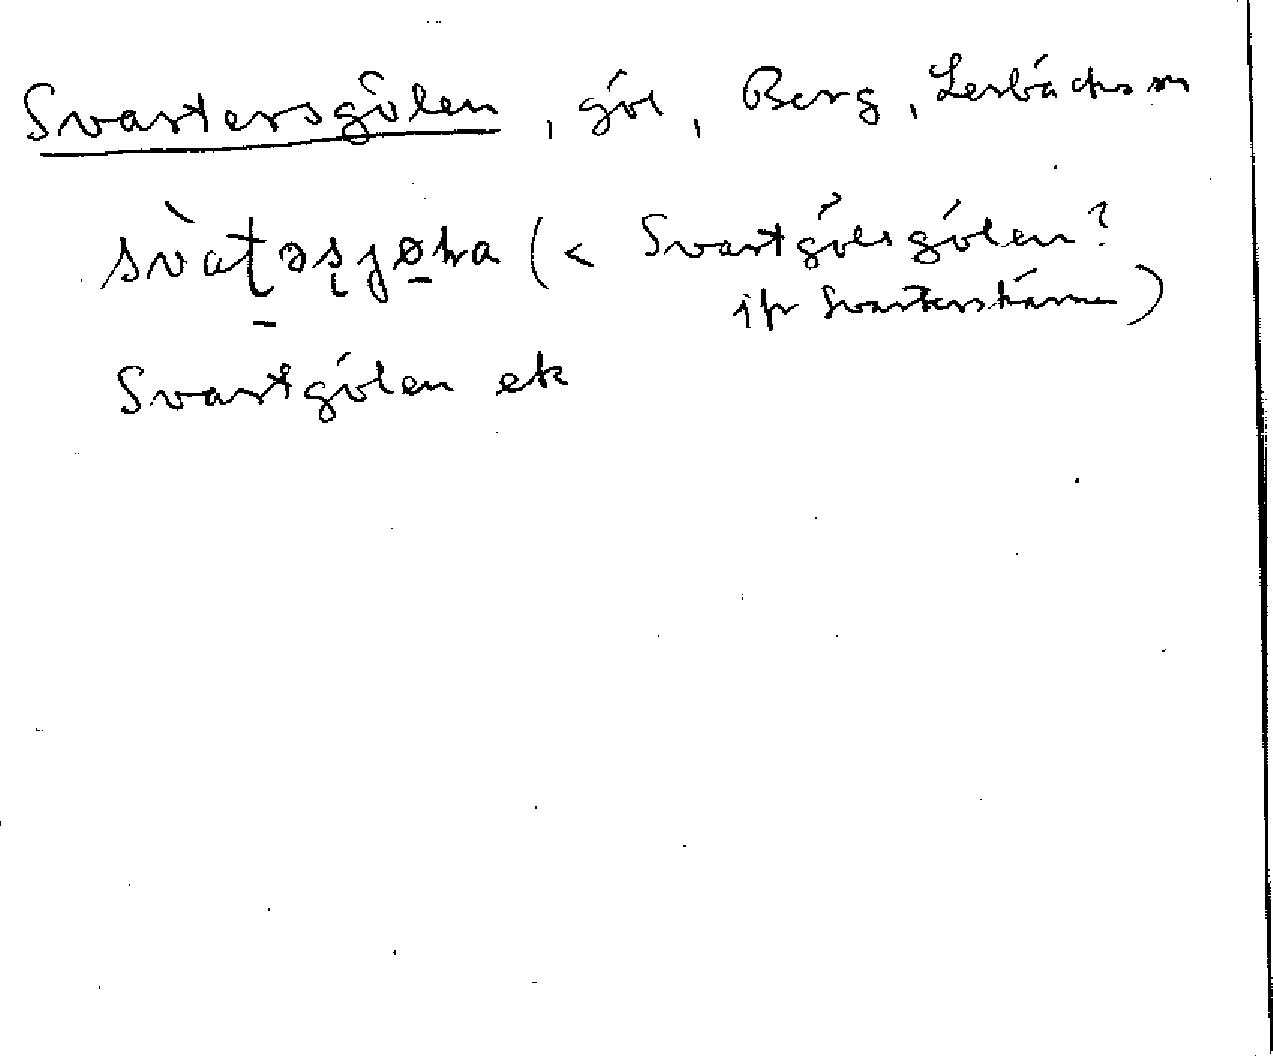 Svartersgölen, göl, Berg, Lerbäcks sn
(< Svartgölsgölen?
jfr Svarterskärren)
Svartgölen ek